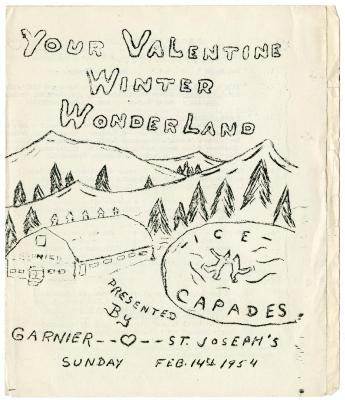 YOUR VALENTINE
WINTER
WONDERLAND
GARNIER
ICE-
CAPADES.
PRESENTED
By
GARNIER--♡--ST. JOSEPH'S
SUNDAY FEB. 14th 1954